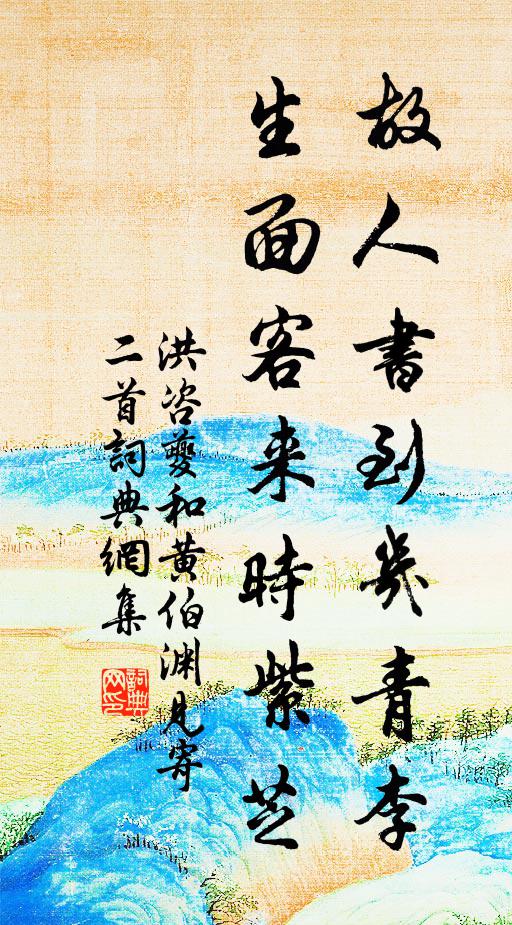 故人書到幾青李
生面客来時紫芝
洪咨夔和黄伯渊見寄
二首詞典網集
詞典
网印